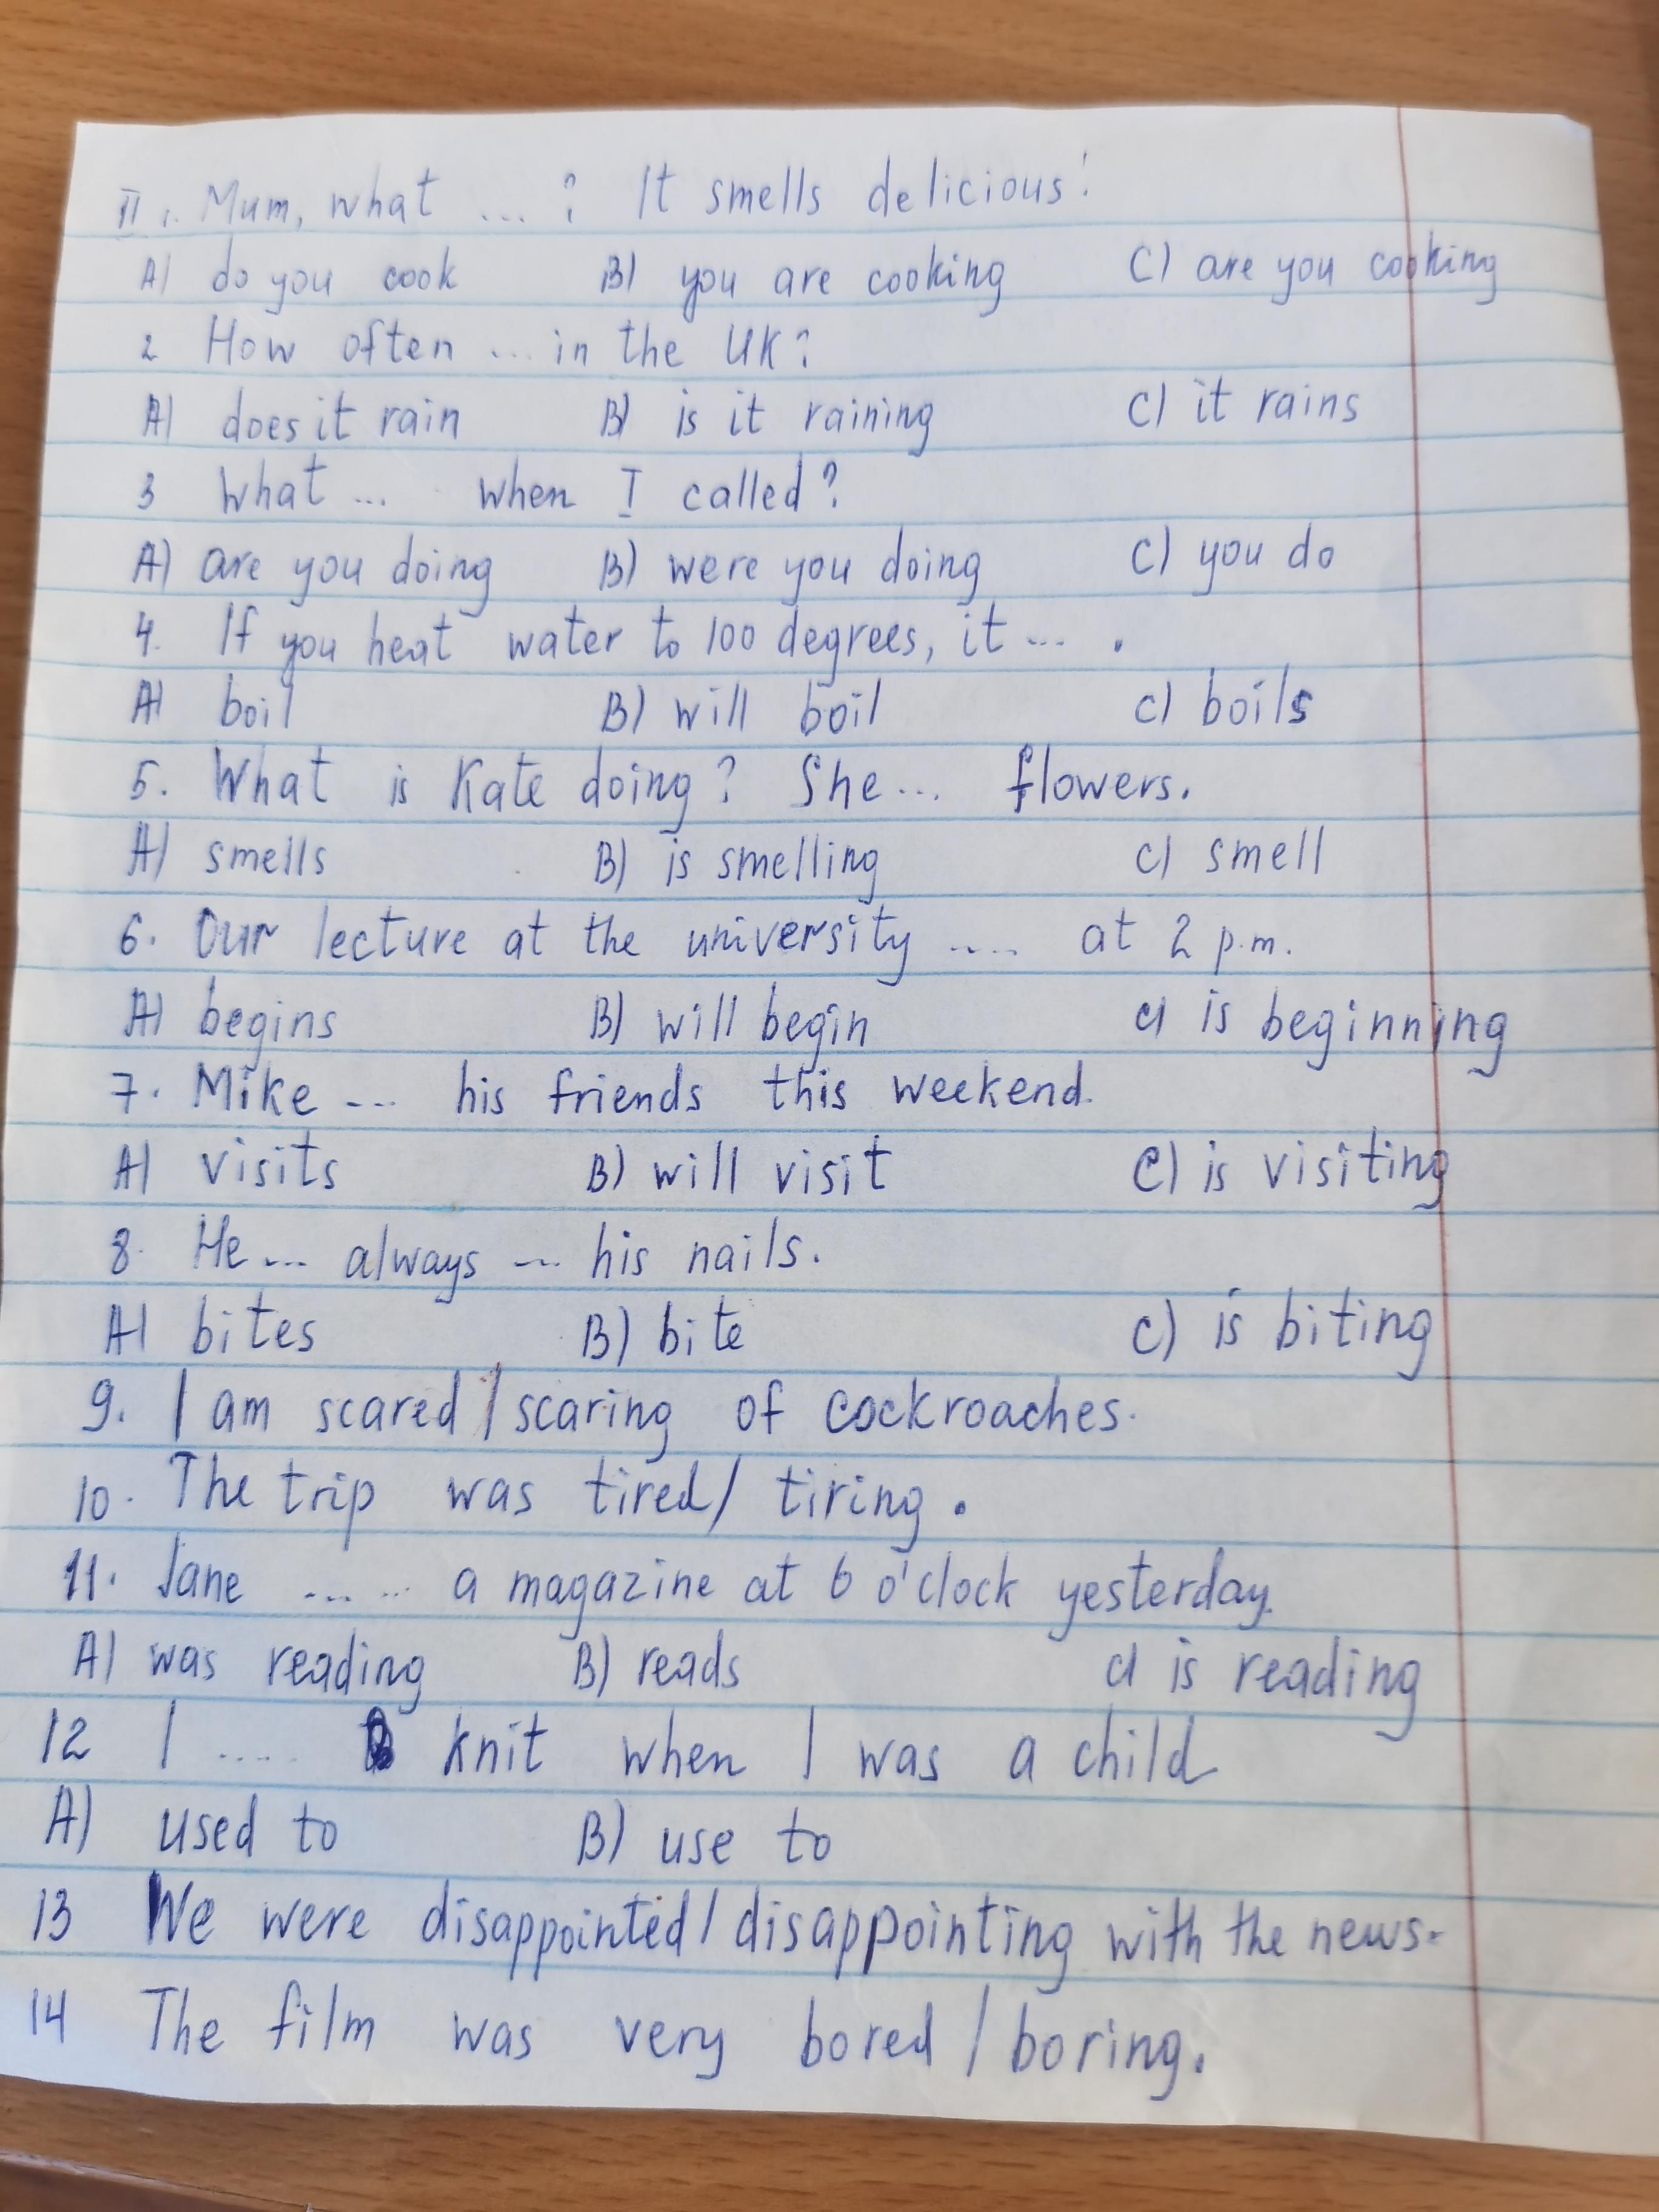 II 1. Mum, what ... ? It smells delicious!
A) do you cook B) you are cooking C) are you cooking
2 How often ... in the UK?
A) does it rain B) is it raining C) it rains
3 What ... when I called?
A) are you doing B) were you doing C) you do
4. If you heat water to 100 degrees, it ... .
A) boil B) will boil C) boils
5. What is Kate doing? She ... flowers.
A) smells B) is smelling C) smell
6. Our lecture at the university .... at 2 p.m.
A) begins B) will begin C) is beginning
7. Mike ... his friends this weekend.
A) visits B) will visit C) is visiting
8. He ... always ... his nails.
A) bites B) bite C) is biting
9. I am scared / scaring of cockroaches.
10. The trip was tired / tiring.
11. Jane ..... a magazine at 6 o'clock yesterday.
A) was reading B) reads C) is reading
12 I .... knit when I was a child
A) used to B) use to
13 We were disappointed / disappointing with the news.
14 The film was very bored / boring.